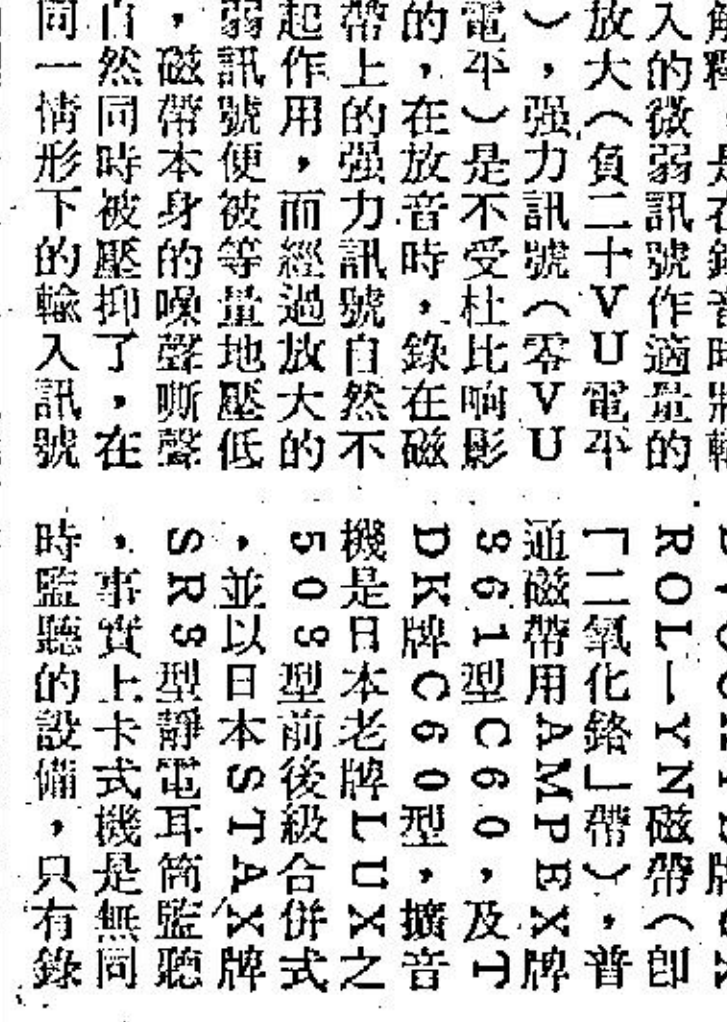 解釋，是在錄音時將輸
入的微弱訊號作適量的
放大（負二十VU電平
），强力訊號（零VU
電平）是不受杜比响影
的，在放音時，錄在磁
帶上的强力訊號自然不
起作用，而經過放大的
弱訊號便被等量地壓低
，磁帶本身的噪聲嘶聲
自然同時被壓抑了，在
同一情形下的輸入訊號
ROL—YN磁帶（卽
「二氧化鉻」帶），普
通磁帶用AMPEX牌
361型C60，及T
DK牌C60型，擴音
機是日本老牌LUX之
503型前後級合併式
，並以日本STAX牌
SR3型靜電耳筒監聽
，事實上卡式機是無同
時監聽的設備，只有錄